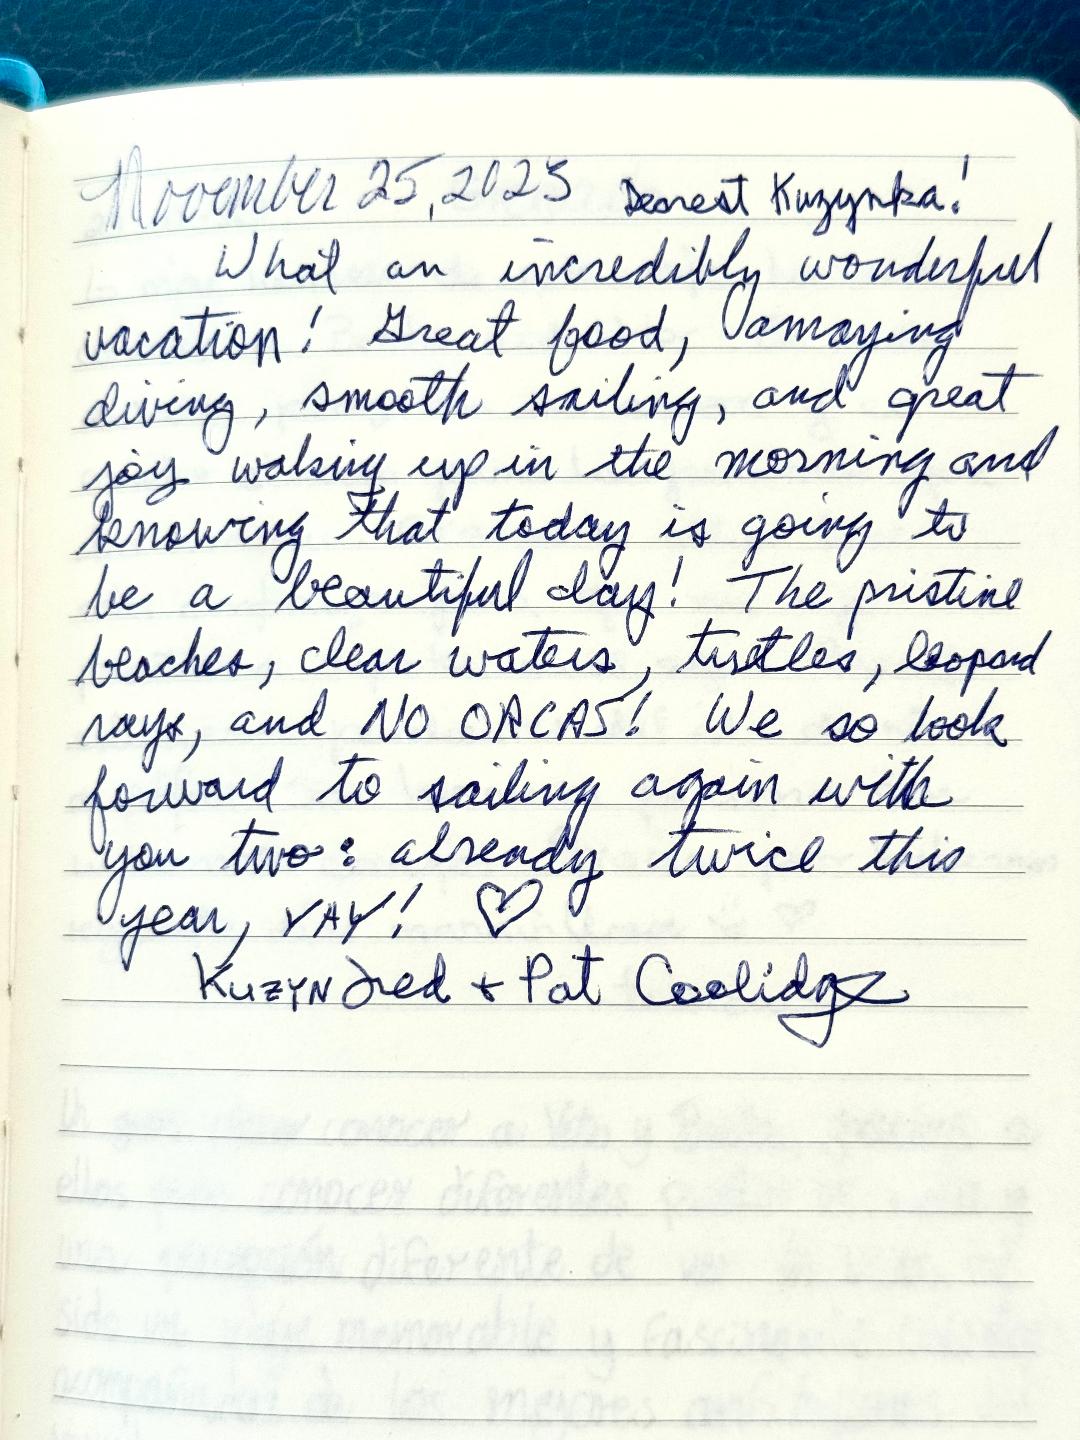 November 25, 2023 Dearest Kuzynka!
What an incredibly wonderful
vacation! Great food, amazing
diving, smooth sailing, and great
joy waking up in the morning and
knowing that today is going to
be a beautiful day! The pristine
beaches, clear waters, turtles, leopard
rays, and NO ORCAS! We so look
forward to sailing again with
you two: already twice this
year, YAY! ♡
KUZYN Fred + Pat Coolidge
conocer a y
ellos conocer diferentes
diferente de
memorable y
de los mejores